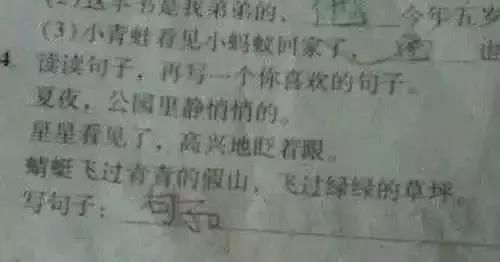 (2)这本书是我弟弟的，他 今年五岁
(3)小青蛙看见小蚂蚁回家了， 也
4 读读句子，再写一个你喜欢的句子。
夏夜，公园里静悄悄的。
星星看见了，高兴地眨着眼。
蜻蜓飞过青青的假山，飞过绿绿的草坪。
写句子：句子